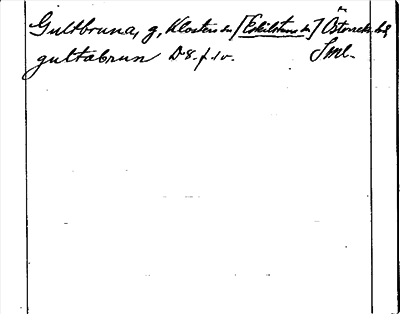 Guldbruna, g, Klosters sn [Eskilstuna sn] Österrek. hd,
gultabrun D 8. f. 10. Sml.